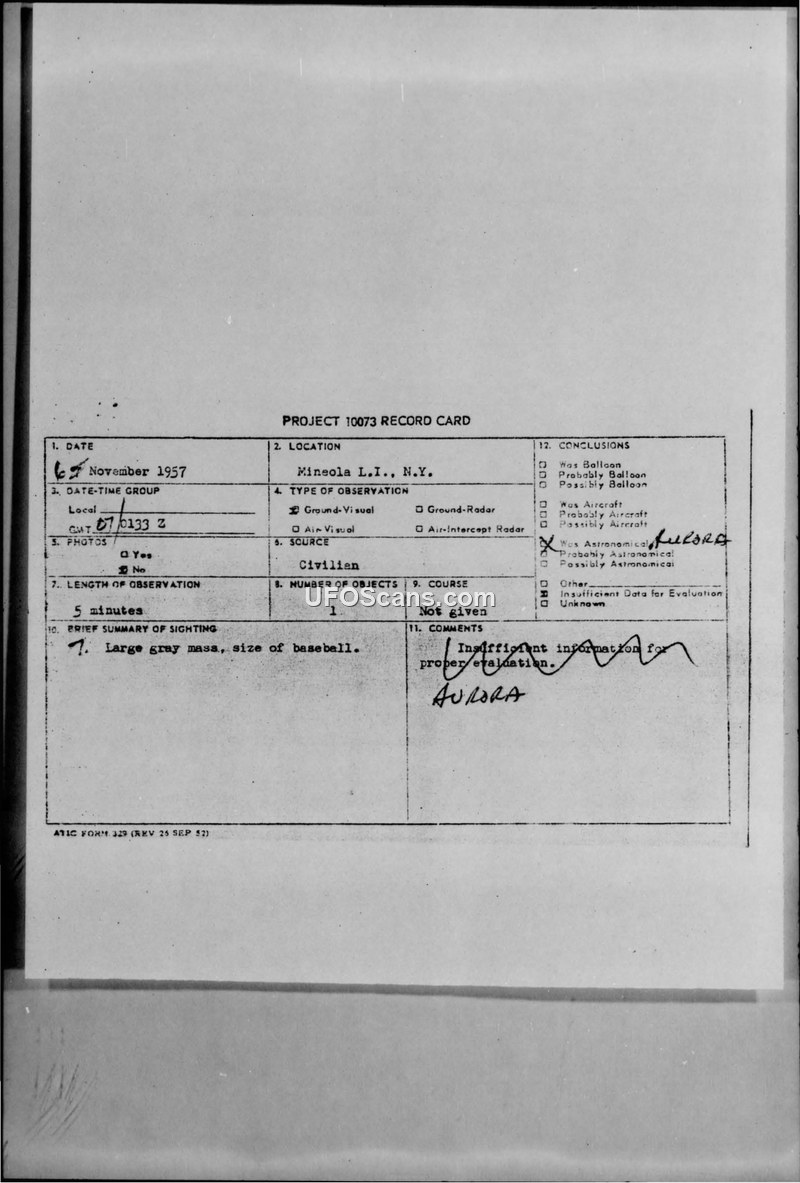 PROJECT 10073 RECORD CARD
1. DATE
6 November 1957
2. LOCATION
Mineola L.I., N.Y.
12. CONCLUSIONS
Was Balloon
Probably Balloon
Possibly Balloon
Was Aircraft
Probably Aircraft
Possibly Aircraft
Was Astronomical AURORA
Probably Astronomical
Possibly Astronomical
Other
Insufficient Data for Evaluation
Unknown
3. DATE-TIME GROUP
Local
GMT 07/0133 Z
4. TYPE OF OBSERVATION
Ground-Visual Ground-Radar
Air-Visual Air-Intercept Radar
5. PHOTOS
Yes
No
6. SOURCE
Civilian
7. LENGTH OF OBSERVATION
5 minutes
8. NUMBER OF OBJECTS
1
9. COURSE
Not given
10. BRIEF SUMMARY OF SIGHTING
Large gray mass, size of baseball.
11. COMMENTS
Insufficient information for
proper evaluation.
AURORA
ATIC FORM 329 (REV 26 SEP 52)
UFOScans.com